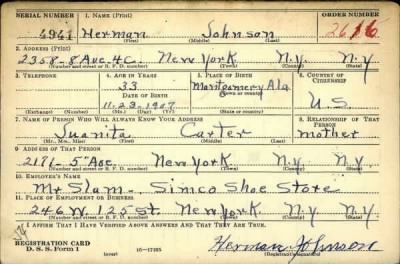 SERIAL NUMBER 1. NAME (Print) ORDER NUMBER
4941 Herman Johnson 2616
(First) (Middle) (Last)
2. ADDRESS (Print)
2358-8 Ave. 4C. New York N.Y. N.Y
(Number and street or R. F. D. number) (Town) (County) (State)
3. TELEPHONE 4. AGE IN YEARS 5. PLACE OF BIRTH 6. COUNTRY OF CITIZENSHIP
33 Montgomery Ala
DATE OF BIRTH (Town or county)
11-23-1907 U.S.
(Exchange) (Number) (Mo.) (Day) (Yr.) (State or country)
7. NAME OF PERSON WHO WILL ALWAYS KNOW YOUR ADDRESS 8. RELATIONSHIP OF THAT PERSON
Juanita Carter mother
(Mr., Mrs., Miss) (First) (Middle) (Last)
9. ADDRESS OF THAT PERSON
2171-5" Ave. New York N.Y N.Y
(Number and street or R. F. D. number) (Town) (County) (State)
10. EMPLOYER'S NAME
Mr Slam - Simco Shoe Store
11. PLACE OF EMPLOYMENT OR BUSINESS
246 W. 125 St. New York. N.Y N.Y
(Number and street or R. F. D. number) (Town) (County) (State)
I AFFIRM THAT I HAVE VERIFIED ABOVE ANSWERS AND THAT THEY ARE TRUE.
REGISTRATION CARD
D. S. S. Form 1 (over) 16-17105 Herman Johnson
(Registrant's signature)